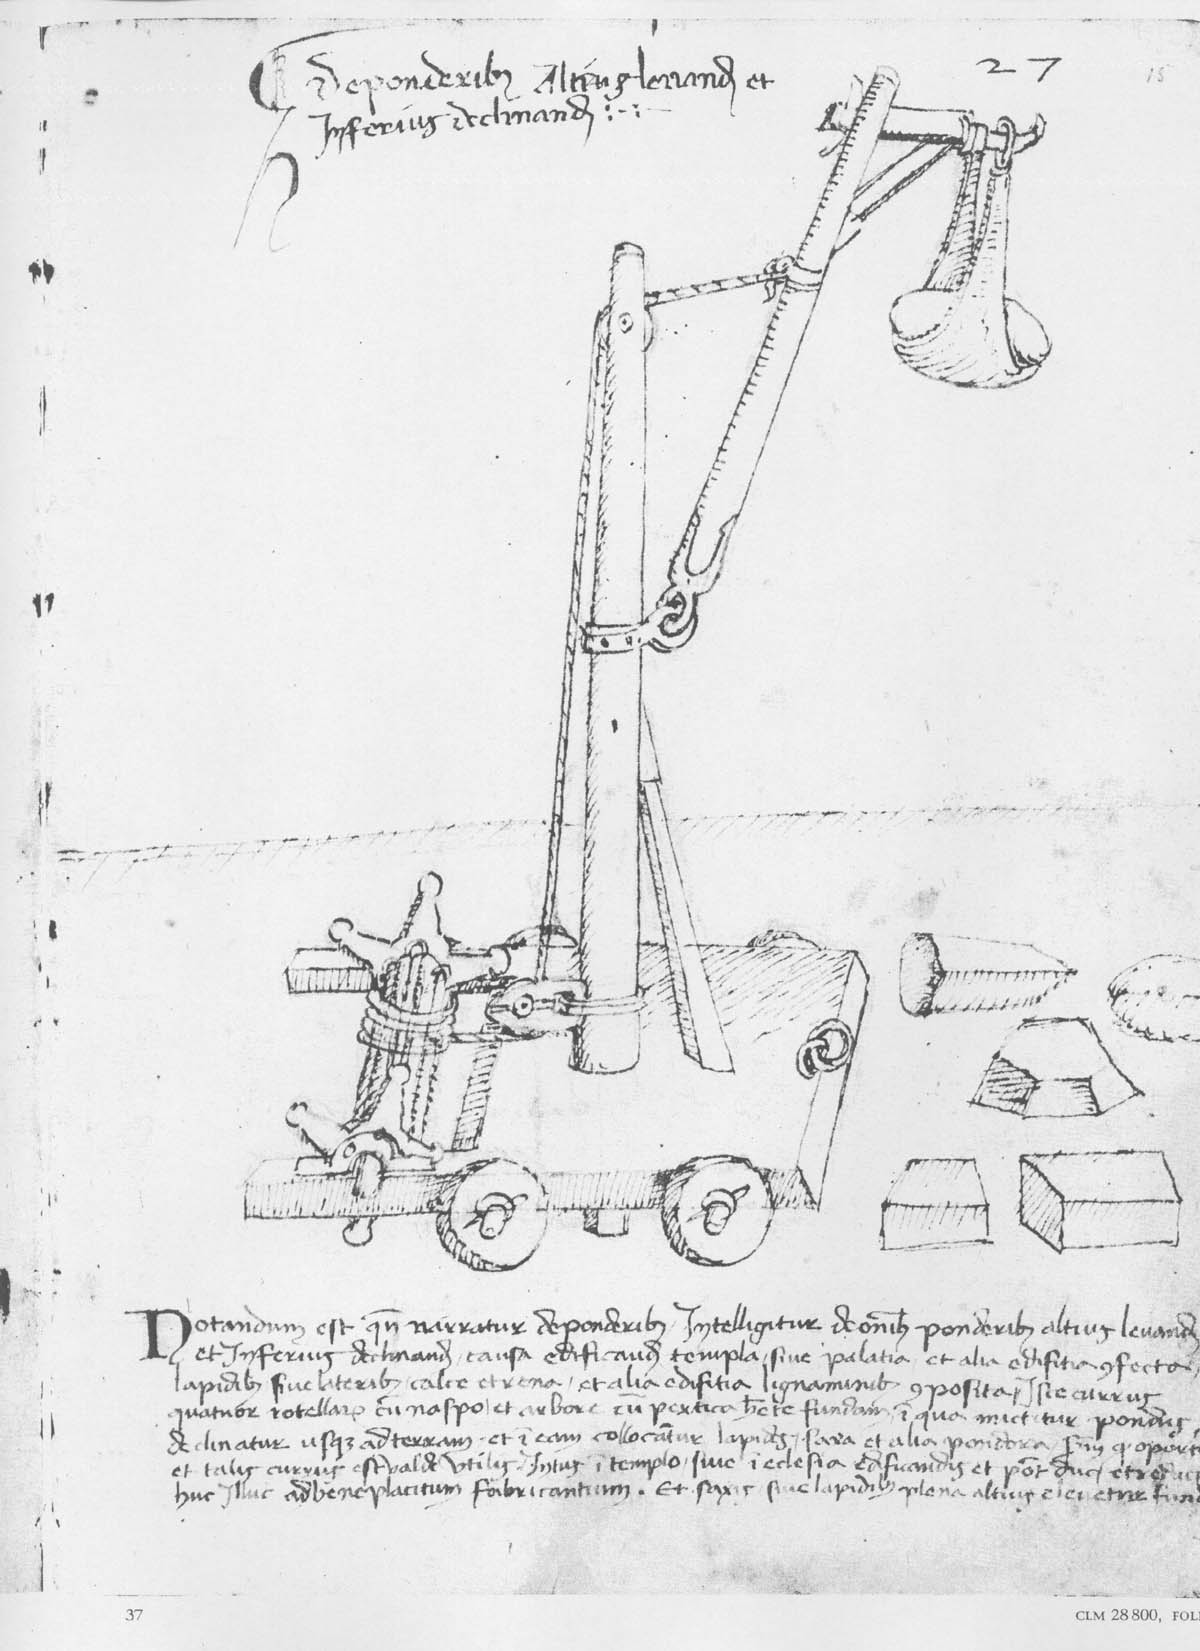 De ponderib₉ Altius levand₉ et
27
15
Infferius declinand₉ :-:
Notandum est qn̄ narratur de ponderib₉ / Intelligitur de om̄ib₉ ponderib₉ altius levand₉
et Inferius declinand₉ / causa edificand₉ templa / sive palatia / et alia edifitia ꝯfecta /
lapidib₉ sive laterib₉ / calce et rena / et alia edifitia lignaminib₉ ꝯposita / Iste currus
quatuor rotellarꝫ cū naspo / et arbore cū pertica hn̄te fundam / ī qua mictitur pondus
declinatur usqꝫ ad terram et ī eam collocātur lapides / saxa et alia pondera /
et talis currus est valde utilis / Intus ī templo / sive ī eclesia edificandis et pōt duci / et reduci
huc Illuc ad bene placitum fabricantium . Et saxis / sive lapidib₉ plena altius elevetur
37
CLM 28 800,